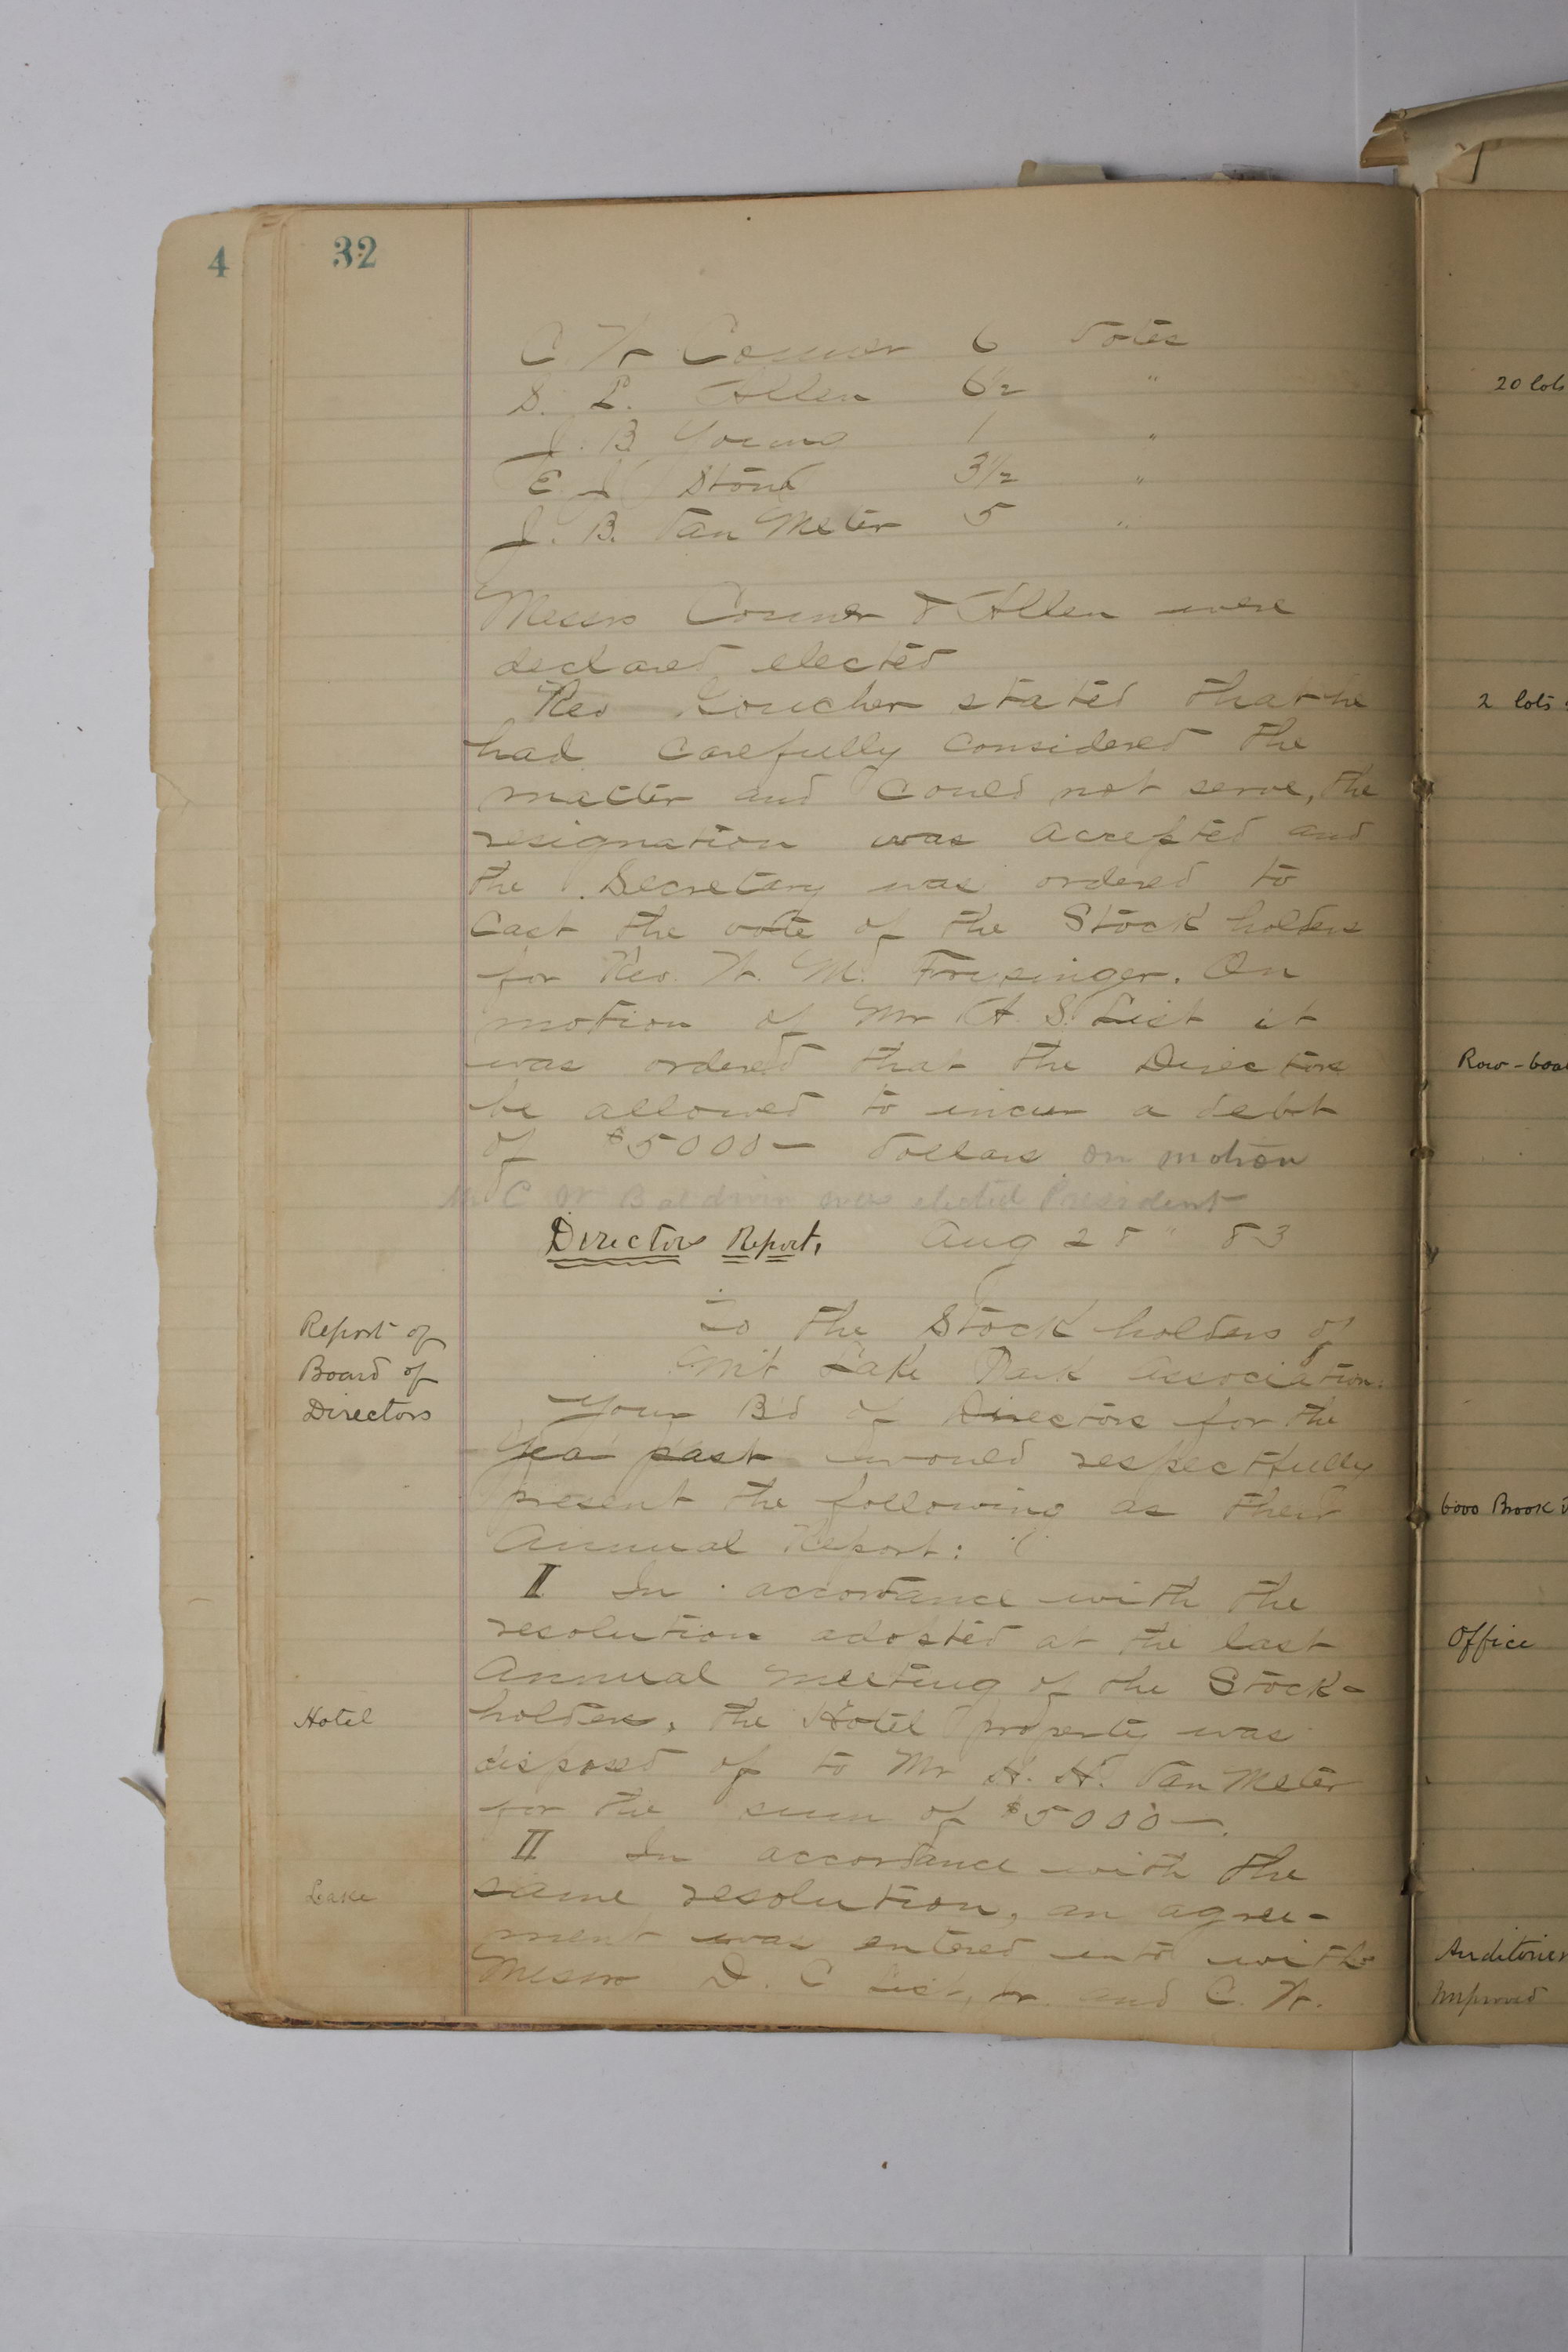 4
32
C. W. Conner 6 votes
S. L. Allen 6½ "
J. B. Young 1 "
E. J. Stone 3½ "
J. B. Van Meter 5 "
Messrs Conner & Allen were
declared elected
Rev Goucher stated that he
had carefully considered the
matter and could not serve, the
resignation was accepted and
the Secretary was ordered to
cast the vote of the Stock holders
for Rev. W. M. Frysinger. On
motion of Mr A. S. List it
was ordered that the Directors
be allowed to incur a debt
of $5000— dollars on motion
C W Baldwin was elected President
Directors Report. Aug 28" 83
Report of
Board of
Directors
To the Stock holders of
Mt Lake Park Association:
Your B'd of Directors for the
Year past would respectfully
present the following as their
Annual Report:
I In accordance with the
resolution adopted at the last
Annual meeting of the Stock-
Hotel
holders, the Hotel property was
disposed of to Mr H. H. Van Meter
for the sum of $5000—.
II In accordance with the
Lake
same resolution, an agree-
ment was entered into with
Messrs D. C List, Jr. and C. W.
20 lots
2 lots
Row-boat
6000 Brook
Office
Improved